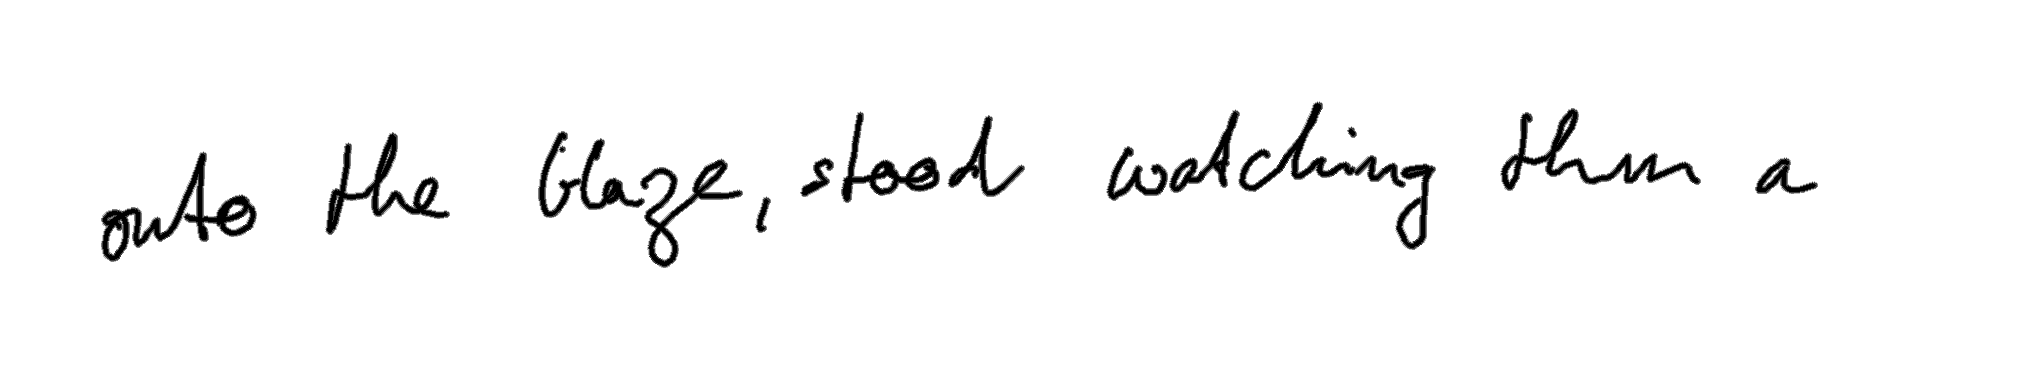 onto the blaze, stood watching them a